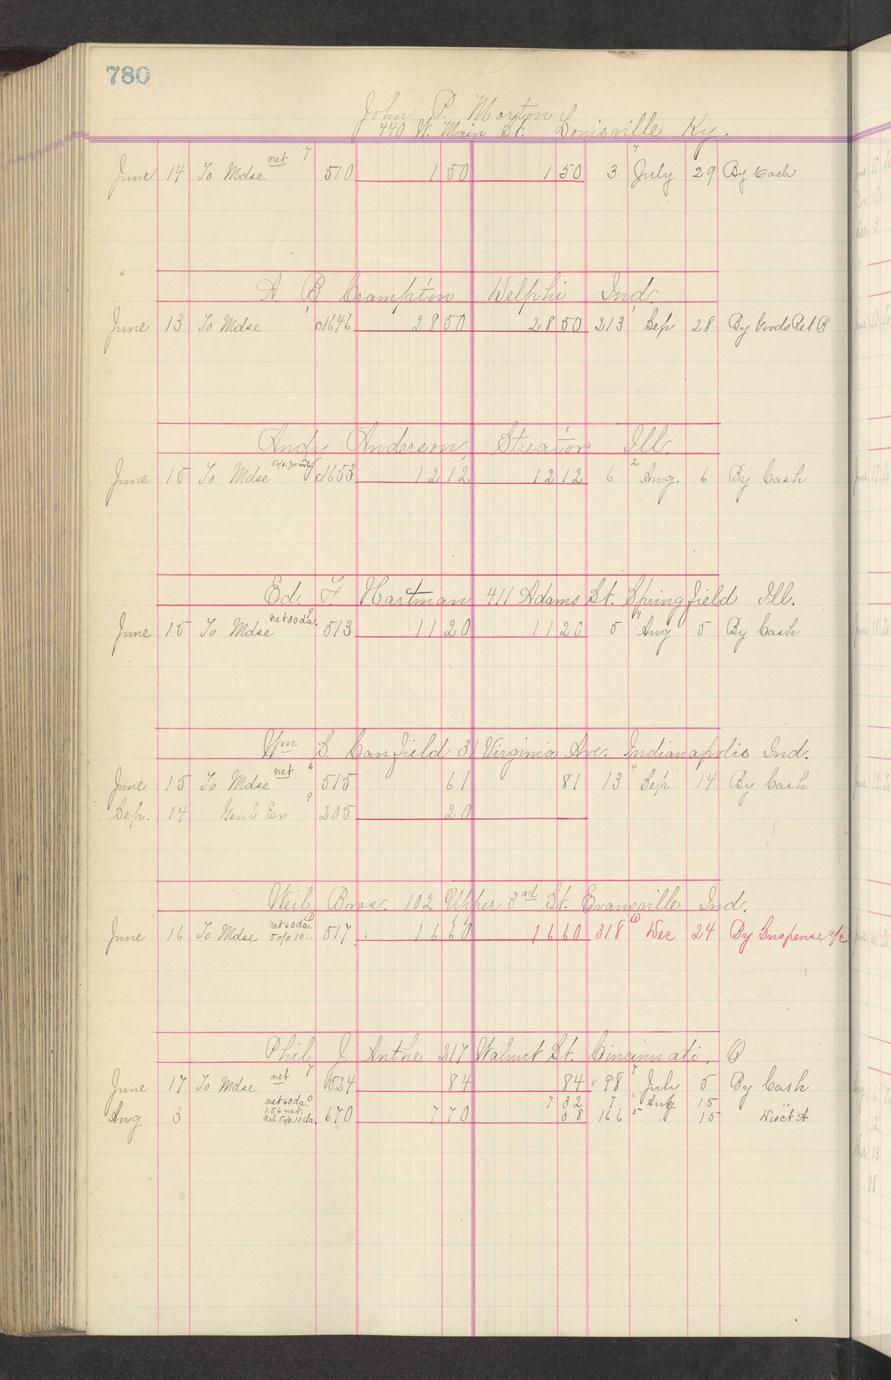 780
John P. Morton
440 W. Main St. Louisville Ky.
June 14 To Mdse net 7 510 1 50 1 50 3 7 July 29 By Cash
A B Crampton Delphi Ind.
June 13 To Mdse c1646 28 50 28 50 213 Sep 28 By Goods Ret
Andy Anderson, Streator Ill.
June 15 To Mdse c1653 12 12 12 12 6 2 Aug. 6 By Cash
Ed. F. Hartman 411 Adams St. Springfield Ill.
June 15 To Mdse net 30 da. 513 11 20 11 20 5 Aug 5 By Cash
Wm S. Canfield 31 Virginia Ave. Indianapolis Ind.
June 15 To Mdse net 6 515 61 81 13 Sep 14 By Cash
Sep. 14 Genl Ex 9 205 20
Weil Bros. 102 Upper 3rd St. Evansville Ind.
June 16 To Mdse net 60 da. 5% 10 517 16 60 16 60 318 Dec 24 By Suspense a/c
Phil J. Anthe 217 Walnut St. Cincinnati, O
June 17 To Mdse net 7 524 84 84 98 7 July 5 By Cash
Aug 3 net 60 da. 670 7 70 7 32 7 Aug 15 "
1.56 net. 38 166 5 " 15 Disct A